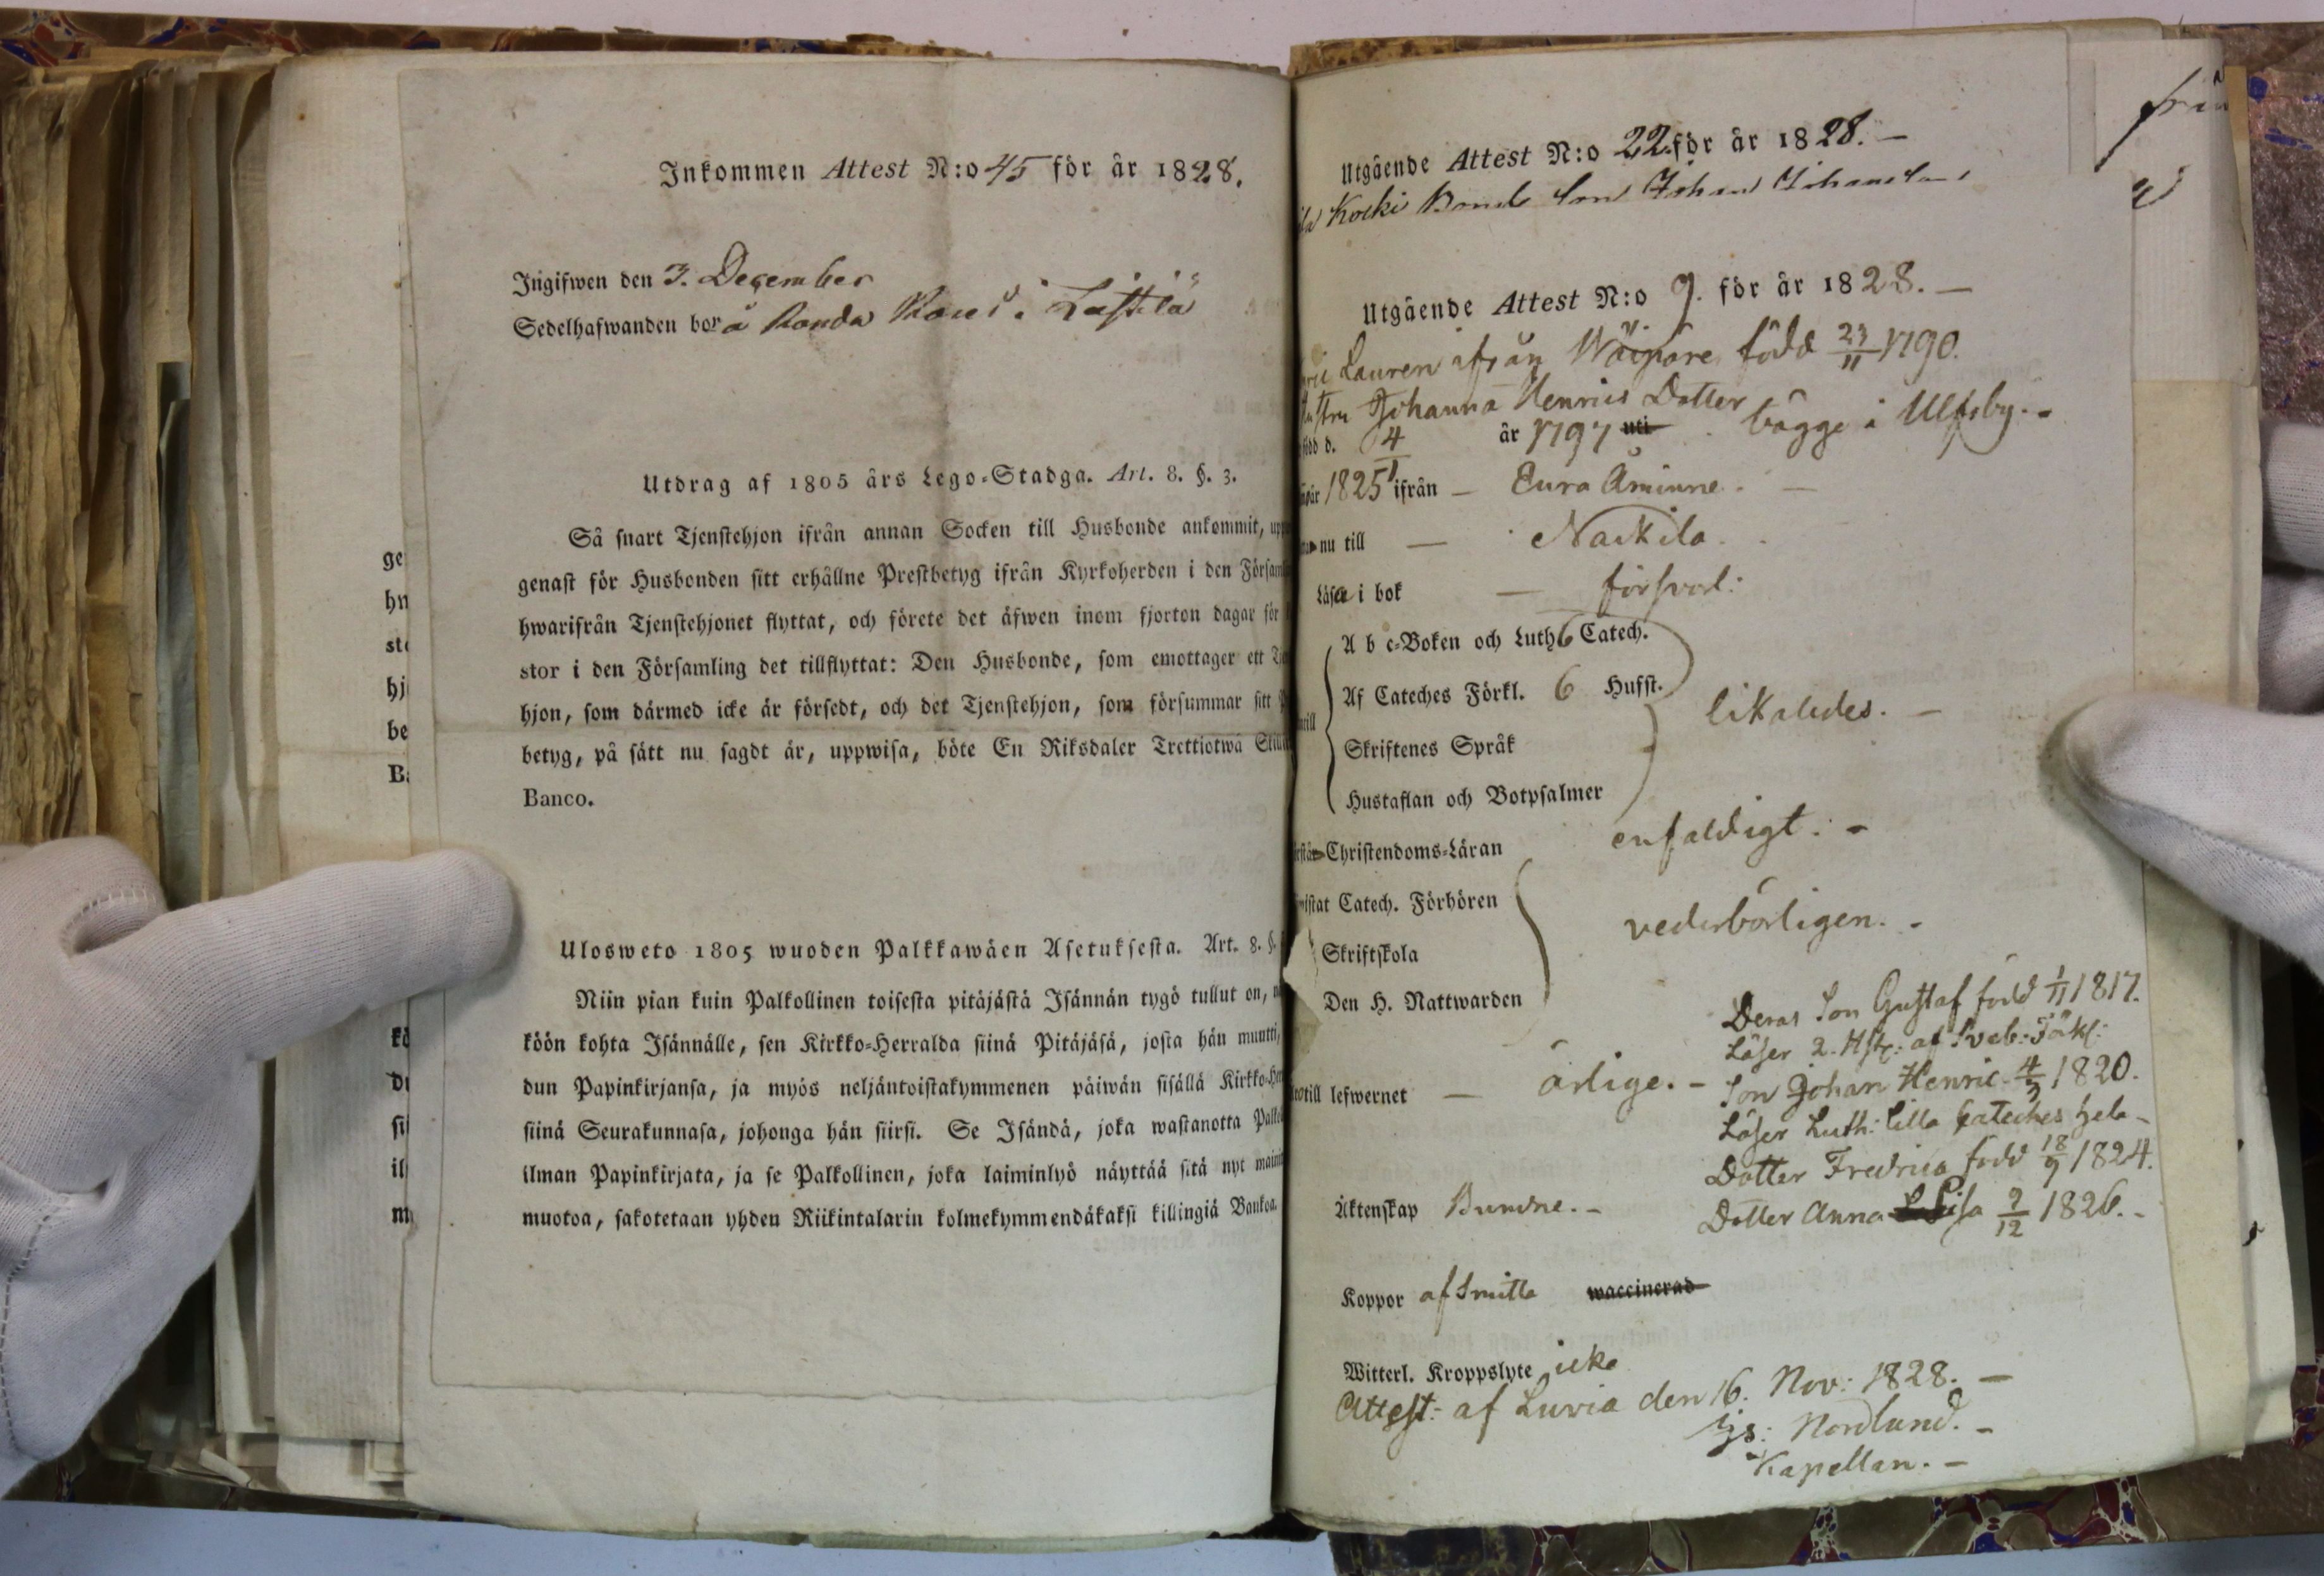 Inkommen Attest N:o 45 för år 1828.
Ingifwen den 3. December
Sedelhafwanden bor å
Utdrag af 1805 års Lego-Stadga. Art. 8. §. 3.
Så snart Tjenstehjon ifrån annan Socken till Husbonde ankommit, upp
genast för Husbonden sitt erhållne Prestbetyg ifrån Kyrkoherden i den Församl
hwarifrån Tjenstehjonet flyttat, och förete det äfwen inom fjorton dagar för
stor i den Församling det tillflyttat: Den Husbonde, som emottager ett
hjon, som därmed icke är försedt, och det Tjenstehjon, som försummar sitt
betyg, på sätt nu sagdt är, uppwisa, böte En Riksdaler Trettiotwå Skill
Banco.
Ulosweto 1805 wuoden Palkkawäen Asetuksesta. Art. 8. §.
Niin pian kuin Palkollinen toisesta pitäjästä Isännän tygö tullut on,
köön kohta Isännälle, sen Kirkko-Herralda siinä Pitäjäsä, josta hän muutti,
dun Papinkirjansa, ja myös neljäntoistakymmenen päiwän sisällä Kirkko-Her
siinä Seurakunnasa, johonga hän siirsi. Se Isändä, joka wastanotta Palko
ilman Papinkirjata, ja se Palkollinen, joka laiminlyö näyttää sitä nyt main
muotoa, sakotetaan yhden Riikintalarin kolmekymmendäkaksi killingiä Bankoa.
ge
hn
ste
hj
be
Ba
kö
du
sii
il
m
Utgående Attest N:o 22 för år 1828. —
Bonde Son Johan Johansson
Utgående Attest N:o 9. för år 1828. —
Lauren ifrån född 23/11 1790.
Hustru Johanna Henrics Dotter
född d. 4/1 år 1797 uti bägge i Ulfsby. -
år 1825 ifrån — Eura Åminne. —
nu till — Nackila.
Läsa i bok — försvarl:
A b c-Boken och Luth 6 Catech.
Af Cateches Förkl. 6 Hufst.
likaledes. —
Skriftenes Språk
Hustaflan och Botpsalmer
Christendoms-Läran enfaldigt: -
wistat Catech. Förhören
vederbörligen. -
Skriftskola
Den H. Nattwarden
Deras Son Gustaf född 1/11 1817.
Läser 2. Hst: af Sveb: Förkl:
till lefwernet — ärlige. - Son Johan Henric 4/3 1820.
Läser Luth: lilla Cateches hela -
Dotter Fredrica född 18/9 1824.
Äktenskap Bundne. - Dotter Anna Lisa 9/12 1826. -
Koppor af Smitta waccinerad
Witterl. Kroppslyte icke
Attest:- af Luvia den 16. Nov: 1828. —
Nordlund. -
Kapellan. —
från